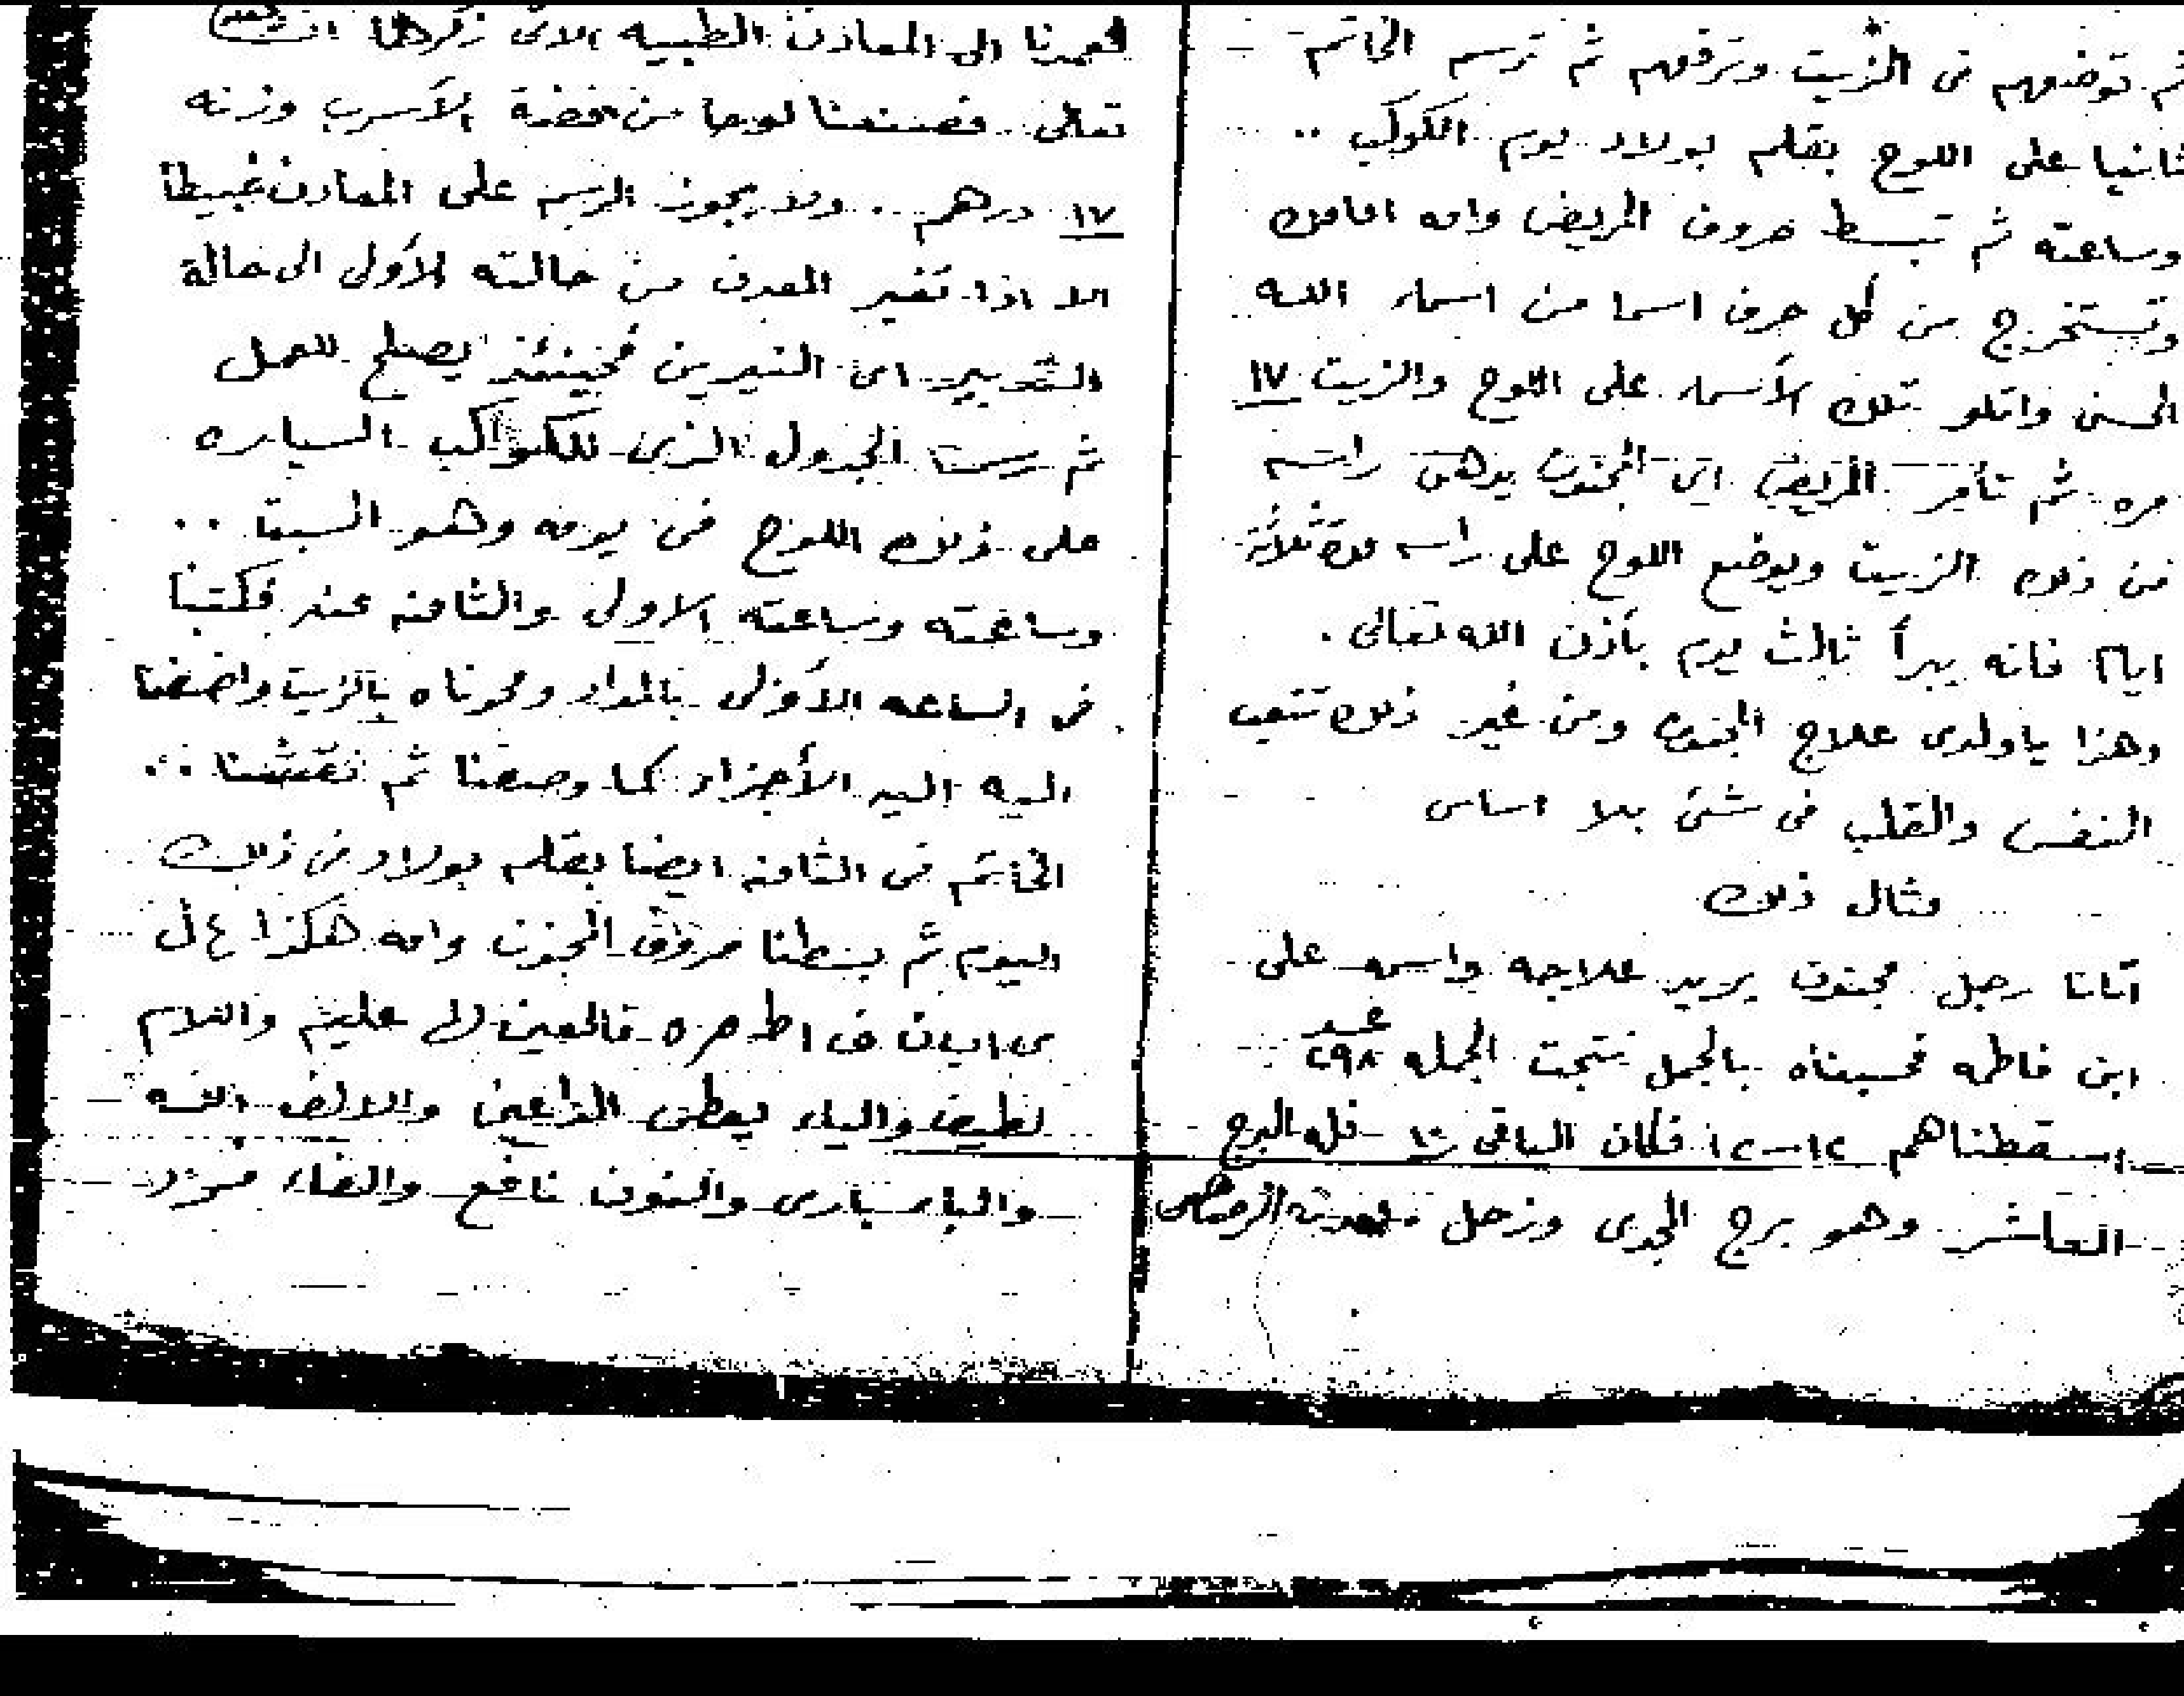 ثم توضعهم فى الزيت وترفعهم ثم ترسم الخاتم
ثانيا على اللوح بقلم بولاد يوم الكوكب ..
وساعته ثم تبسط حروف المريض وامه امامك
وتستخرج من كل حرف اسما من اسماء الله
الحسنى واتلو تلك الأسماء على اللوح والزيت ١٧
مره ثم تأمر المريض اى المجنون يدهن راسه
من ذلك الزيت ويوضع اللوح على راسه مدة ثلاثة
ايام فانه يبرأ ثالث يوم بأذن الله تعالى .
وهذا ياولدى علاج الجنون ومن غير ذلك تتعب
النفس والقلب فى شئ بلا اساس
مثال ذلك
أتانا رجل مجنون يريد علاجه واسمه على
ابن فاطمه فحسبناه بالجمل نتجت الجمله عدد ٢٩٨
اسقطناهم ١٢-١٢ فكان الباقى ١٠ فله البرج
العاشر وهو برج الجدى وزحل معدنه الرصاص
فعمدنا الى المعادن الطبيه الاتى ذكرها انشاء الله
تعالى فصنعنا لوحا من فضة الأسرب وزنه
١٧ درهم . ولا يجوز الرسم على المعادن عبيطا
الا اذا تغير المعدن من حالته الأولى الى حالة
التدبير اى النيرين فحينئذ يصلح للعمل
ثم رسمنا الجدول الذى للكواكب السياره
على ذلك اللوح فى يومه وهو السبت ..
وساعته وساعته الاولى والثامنه عند فكتبنا
فى الساعه الأولى بالمداد ومحوناه بالزيت واضفنا
اليه اليه الأجزاء كما وصفنا ثم نقشنا ..
الخاتم فى الثامنه ايضا بقلم بولاد من ذلك
اليوم ثم بسطنا حروف المجنون وامه هكذا ع ل
ى ا ب ن ف ا ط م ه فالعين الى عليم واللام
لطيف والياء يعطى الداعين والالف الله
والباء بارى والنون نافع والفاء فرد